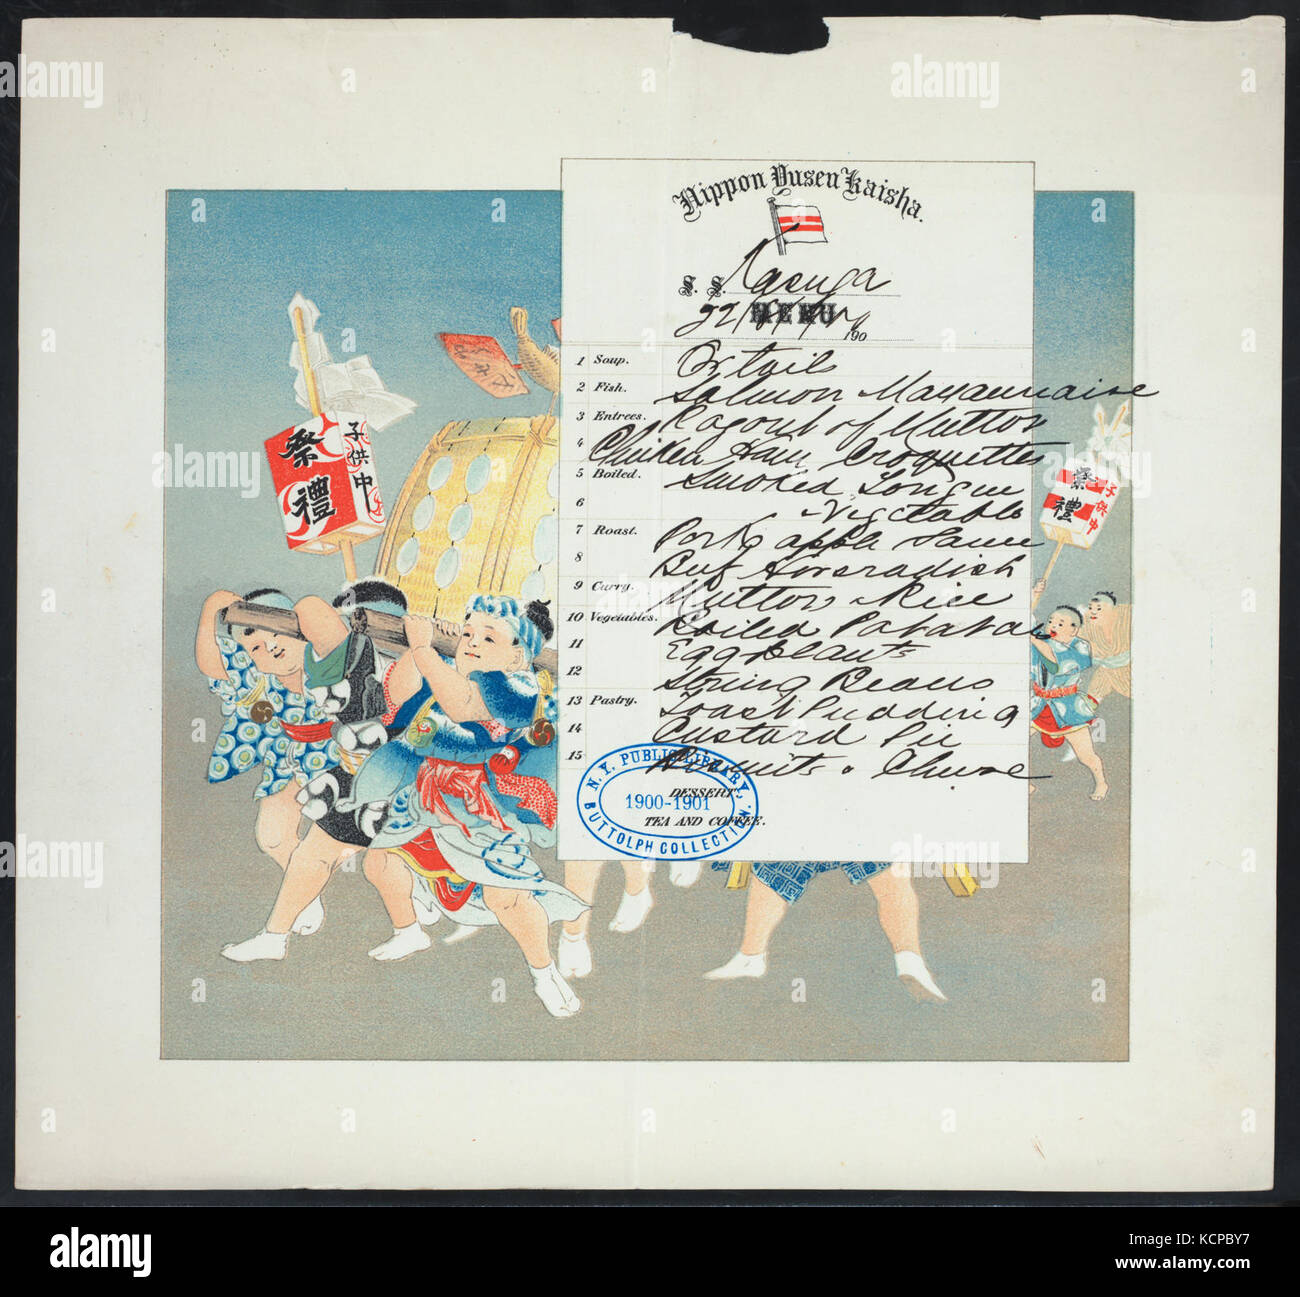 Nippon Yusen Kaisha.
S. S. Kasuga
MENU
190
1 Soup. Oxtails
2 Fish. Salmon Mayaunnaise
3 Entrees. Ragout of Mutton
4 Chicken Ham Croquettes
5 Boiled. Smoked Tongue
6 Vegetable
7 Roast. Pork apple Sauce
8 Beef Horseradish
9 Curry. Mutton & Rice
10 Vegetables. Boiled Patatas
11 Egg Plants
12 String Beans
13 Pastry. Toast Pudding
14 Custard Pie
15 Biscuits & Cheese
DESSERT.
TEA AND COFFEE.
N.Y. PUBLIC LIBRARY.
1900-1901
BUTTOLPH COLLECTION.
祭禮
子供中
祭禮
子供中
alamy
Image ID: KCPBY7
www.alamy.com